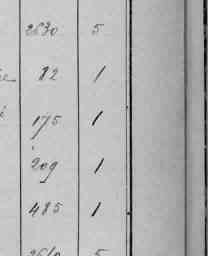 2630 5
82 1
175 1
209 1
485 1
5